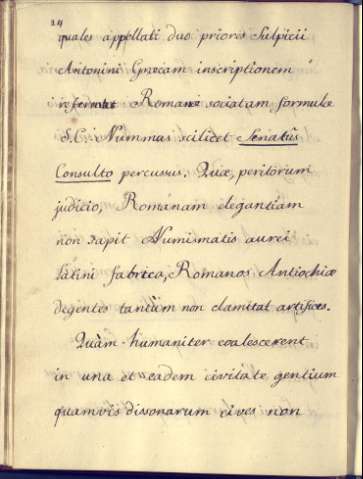 24
quales appellati duo priores Sulpicii
Antonini Græcam inscriptionem
referunt Romanæ sociatam formulæ
S.C.: Nummas scilicet Senatûs
Consulto percussus. Quæ, peritorum
judicio, Romanam elegantiam
non sapit Numismatis aurei
Latini fabrica, Romanos Antiochiæ
degentes tantùm non clamitat artifices.
Quàm humaniter coalescerent
in una et eadem civitate gentium
quamvis dissonarum cives non